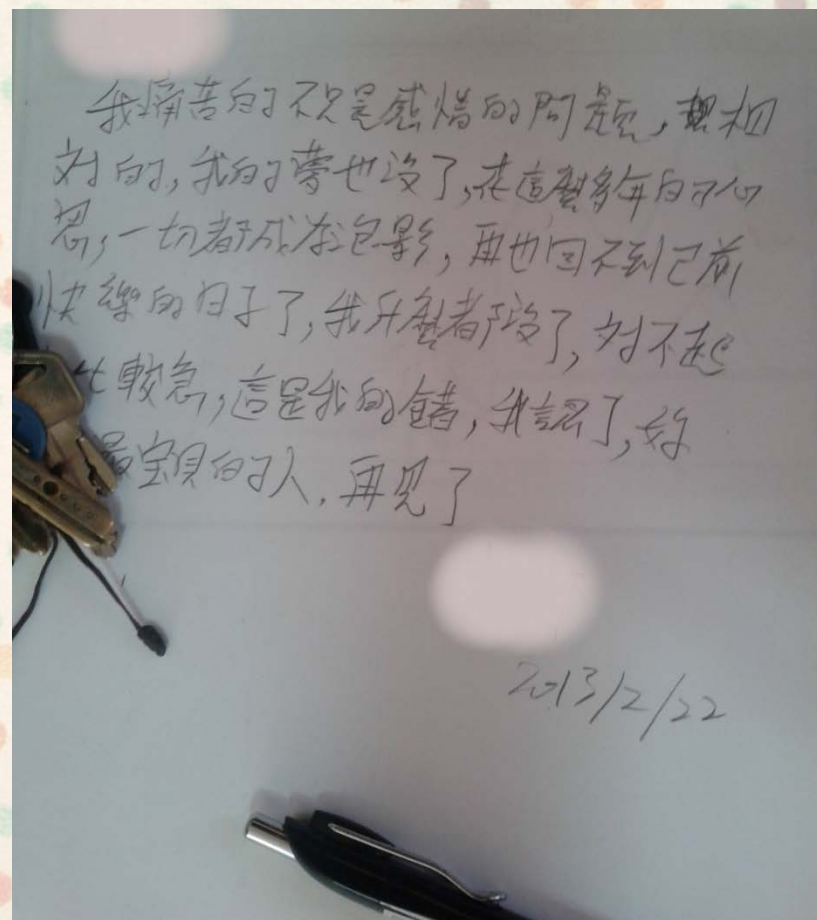 我痛苦的不只是感情的問題,想相
對的,我的夢也沒了,在這麼多年的心
忍,一切都成為泡影,再也回不到已前
快樂的日子了,我什麼都沒了,對不起
比較急,這是我的錯,我認了,好
最宝貝的人,再見了
2013/2/22